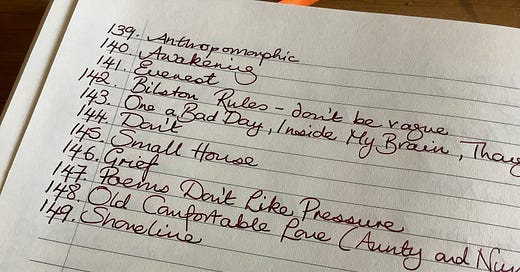 139. Anthropomorphic
140. Awakening
141. Everest
142. Bilston Rules - don't be vague
143. One a Bad Day, Inside My Brain,
144. Don't
145 Small House
146. Grief
147. Poems Don't Like Pressure
148. Old Comfortable Love (Aunty and
149. Shoreline